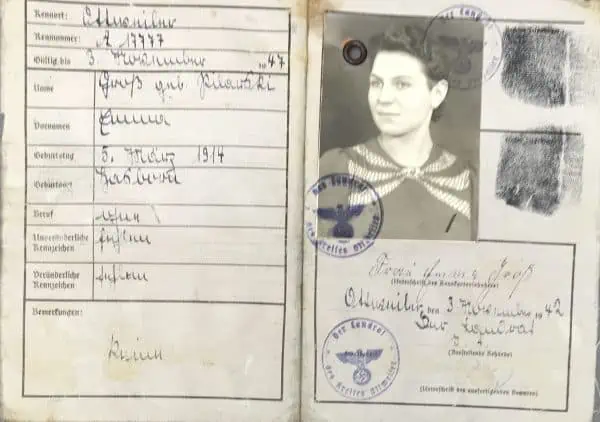 Kennort: Ottweiler
Kennnummer: A 17777
Gültig bis 3. November 1947
Name Groß geb.
Vornamen Emma
Geburtstag 5. März 1914
Geburtsort Hasborn
Beruf ohne
Unveränderliche Kennzeichen fehlen
Veränderliche Kennzeichen fehlen
Bemerkungen:
Keine
Der Landrat
des Kreises Ottweiler
Frau Emma Groß
(Unterschrift des Kennkarteninhabers)
Ottweiler, den 3. November 1942
Der Landrat
(Ausstellende Behörde)
Der Landrat
des Kreises Ottweiler
(Unterschrift des ausfertigenden Beamten)